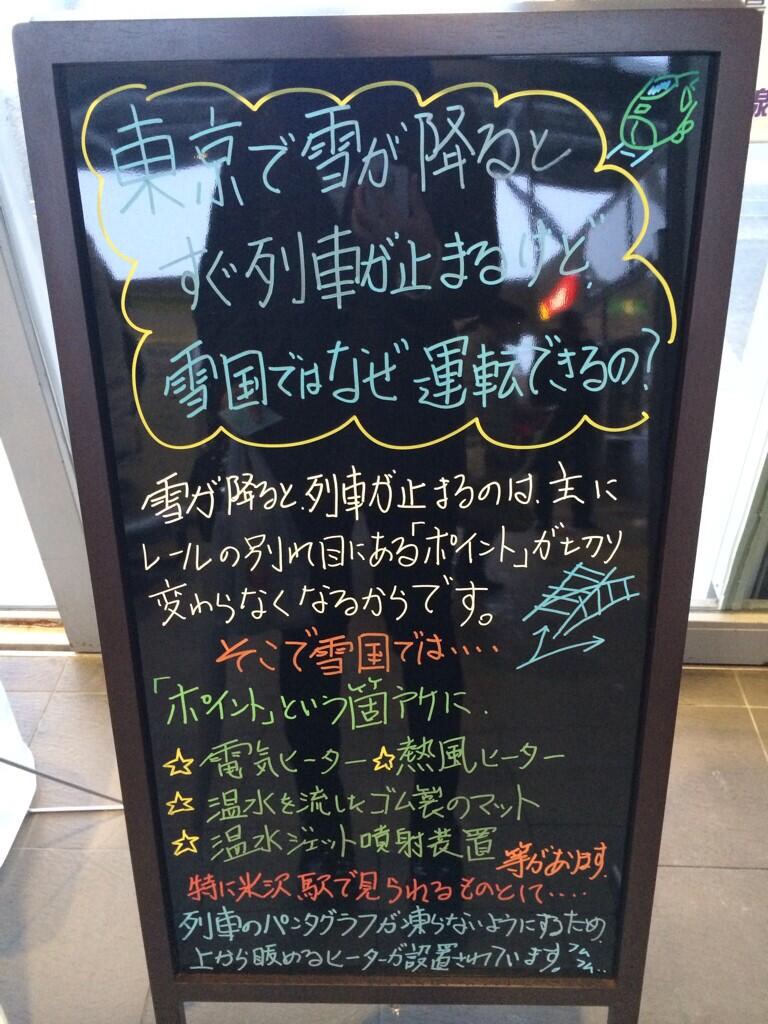 東京で雪が降ると
すぐ列車が止まるけど、
雪国ではなぜ運転できるの?
雪が降ると、列車が止まるのは、主に
レールの別れ目にある「ポイント」が切り
変わらなくなるからです。
そこで雪国では‥‥
「ポイント」という箇所に、
☆電気ヒーター☆熱風ヒーター
☆温水を流したゴム製のマット
☆温水ジェット噴射装置
等があります。
特に米沢駅で見られるものとして‥‥
列車のパンタグラフが凍らないようにするため、
上から暖めるヒーターが設置されています。フムフム‥
泉